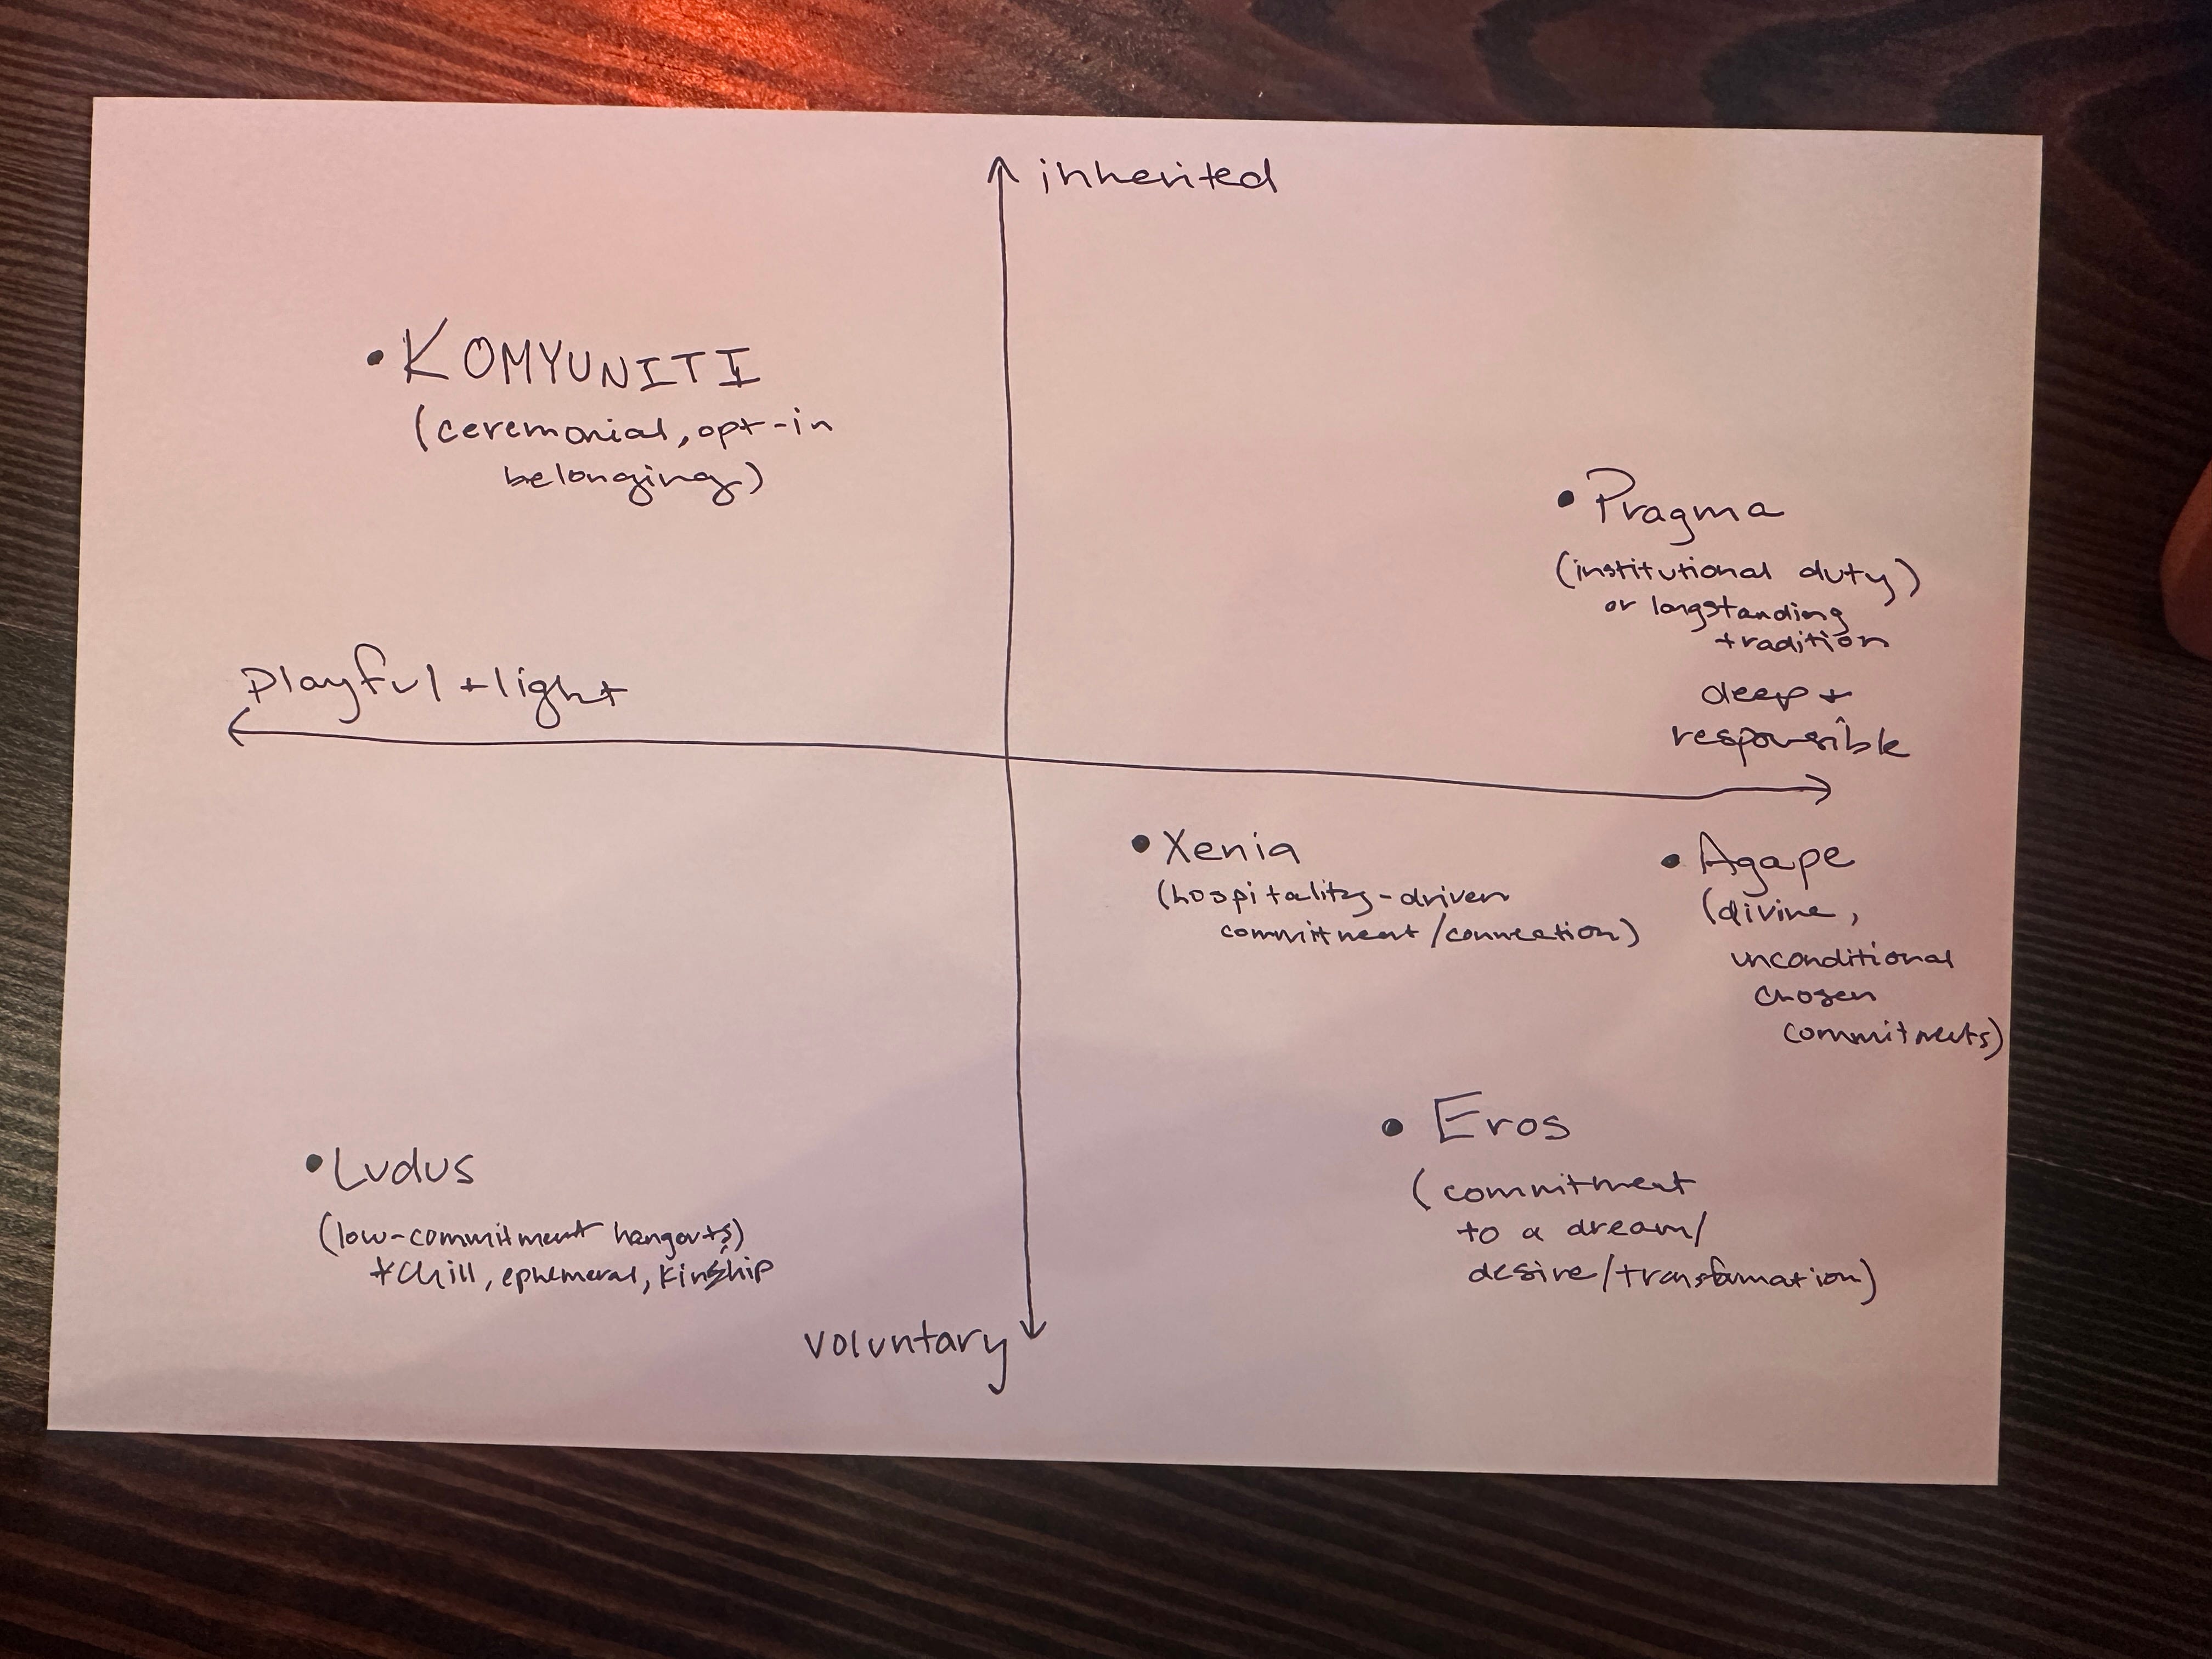 inherited
• KOMYUNITI
(ceremonial, opt-in
belonging)
• Pragma
(institutional duty)
or longstanding
tradition
playful + light
deep +
responsible
• Xenia
(hospitality-driven
commitment/connection)
• Agape
(divine,
unconditional
chosen
commitments)
• Eros
(commitment
to a dream/
desire/transformation)
• Ludus
(low-commitment hangouts)
+ chill, ephemeral, kinship
voluntary